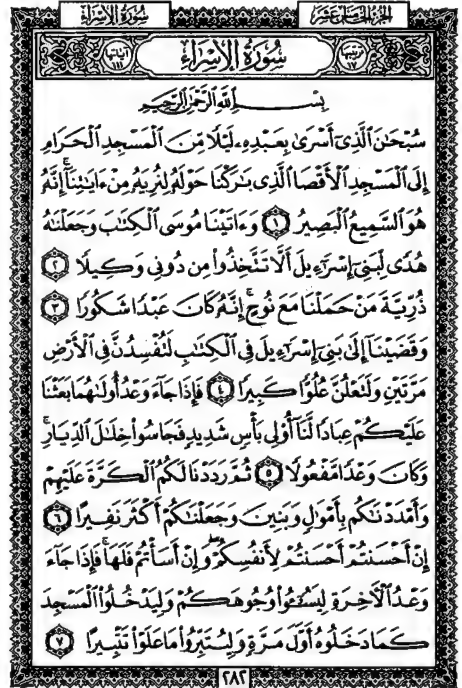 سُورَةُ الإِسْرَاءِ
الجُزْءُ الخَامِسَ عَشَرَ
آيَاتُهَا ١١١
سُورَةُ الإِسْرَاءِ
تَرْتِيبُهَا ١٧
بِسْمِ اللَّهِ الرَّحْمَٰنِ الرَّحِيمِ
سُبْحَٰنَ ٱلَّذِىٓ أَسْرَىٰ بِعَبْدِهِۦ لَيْلًا مِّنَ ٱلْمَسْجِدِ ٱلْحَرَامِ
إِلَى ٱلْمَسْجِدِ ٱلْأَقْصَا ٱلَّذِى بَٰرَكْنَا حَوْلَهُۥ لِنُرِيَهُۥ مِنْ ءَايَٰتِنَآ ۚ إِنَّهُۥ
هُوَ ٱلسَّمِيعُ ٱلْبَصِيرُ ١ وَءَاتَيْنَا مُوسَى ٱلْكِتَٰبَ وَجَعَلْنَٰهُ
هُدًى لِّبَنِىٓ إِسْرَٰٓءِيلَ أَلَّا تَتَّخِذُوا۟ مِن دُونِى وَكِيلًا ٢
ذُرِّيَّةَ مَنْ حَمَلْنَا مَعَ نُوحٍ ۚ إِنَّهُۥ كَانَ عَبْدًا شَكُورًا ٣
وَقَضَيْنَآ إِلَىٰ بَنِىٓ إِسْرَٰٓءِيلَ فِى ٱلْكِتَٰبِ لَتُفْسِدُنَّ فِى ٱلْأَرْضِ
مَرَّتَيْنِ وَلَتَعْلُنَّ عُلُوًّا كَبِيرًا ٤ فَإِذَا جَآءَ وَعْدُ أُولَىٰهُمَا بَعَثْنَا
عَلَيْكُمْ عِبَادًا لَّنَآ أُو۟لِى بَأْسٍ شَدِيدٍ فَجَاسُوا۟ خِلَٰلَ ٱلدِّيَارِ ۚ
وَكَانَ وَعْدًا مَّفْعُولًا ٥ ثُمَّ رَدَدْنَا لَكُمُ ٱلْكَرَّةَ عَلَيْهِمْ
وَأَمْدَدْنَٰكُم بِأَمْوَٰلٍ وَبَنِينَ وَجَعَلْنَٰكُمْ أَكْثَرَ نَفِيرًا ٦
إِنْ أَحْسَنتُمْ أَحْسَنتُمْ لِأَنفُسِكُمْ ۖ وَإِنْ أَسَأْتُمْ فَلَهَا ۚ فَإِذَا جَآءَ
وَعْدُ ٱلْءَاخِرَةِ لِيَسُۥٓـُٔوا۟ وُجُوهَكُمْ وَلِيَدْخُلُوا۟ ٱلْمَسْجِدَ
كَمَا دَخَلُوهُ أَوَّلَ مَرَّةٍ وَلِيُتَبِّرُوا۟ مَا عَلَوْا۟ تَتْبِيرًا ٧
٢٨٢